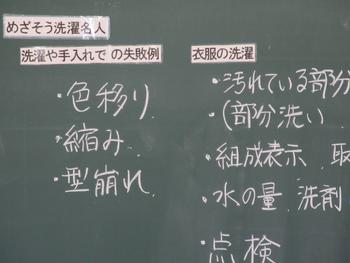 めざそう洗濯名人
洗濯や手入れで の失敗例
・色移り
・縮み
・型崩れ
衣服の洗濯
・汚れている部分
・(部分洗い
・組成表示 取
・水の量 洗剤
・点検